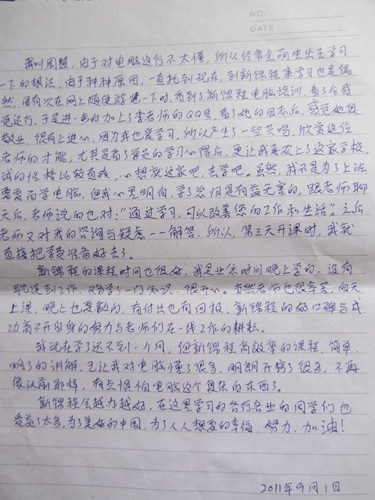 NO.
DATE
我叫周慧，由于对电脑这行不太懂，所以经常会萌生出去学习
一下的想法，由于种种原因，一直拖到现在，到新锦程来学习也是偶
然，没有次在网上随便浏览一下时，看到了新锦程电脑培训，看了后感
觉还行，于是进一步的加上了李老师的QQ号，看了她的日志后，感觉她很
敬业，很有上进心，因为我也爱学习，所以产生了一些共鸣，欣赏这位
老师的才能，尤其是看了学员的学习心得后，更让我喜欢上了这家学校，
我的性格比较直爽，心想就这家吧，去学吧。虽然，我不是为了上班
需要而学电脑，但我心里明白，学了总归是有益无害的，跟老师聊
天后，老师说的也对："通过学习，可以改善您的工作和生活"。之后
老师又对我的咨询与疑虑一一解答，所以，第三天开课时，我就
直接把学费准备好去了。
新锦程的课程时间也很好，我是业余时间晚上学的，没有
耽误到工作，又多学了一门知识，很开心。当然老师也很辛苦，白天
上课，晚上也要教的，有付出也有回报，新锦程的好口碑与成
功离不开自身的努力与老师们在一线工作的耕耘。
我现在学了还不到一个月，但新锦程高效率的课程，简单
明了的讲解，已让我对电脑懂了很多，明朗开窍了很多，不再
像以前那样，有点惧怕电脑这个复杂的东西了。
新锦程会越办越好，在这里学习的各行各业的同学们也
受益了太多，为了美好的中国，为了人人想要的幸福，努力，加油！
2011年9月1日